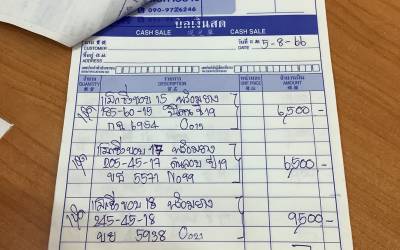 090-9726246
บิลเงินสด
CASH SALE
CASH SALE
วันที่ 5-8-66
DATE
นาม
CUSTOMER
ที่อยู่
ADDRESS
จำนวน
QUANTITY
รายการ
DESCRIPTION
หน่วยละ
UNIT PRICE
จำนวนเงิน
AMOUNT
1ชุด แม็กซิ่งขอบ 15 พร้อมยาง
195-60-15 ปี19 6,500.-
กฉ 6954
1ชุด แม็กซิ่งขอบ 17 พร้อมยาง
205-45-17 ดันลอป ปี19 6,500.-
ขศ 5571 No99
1ชุด แม็กซิ่งขอบ 18 พร้อมยาง
245-45-18 9500.-
5938